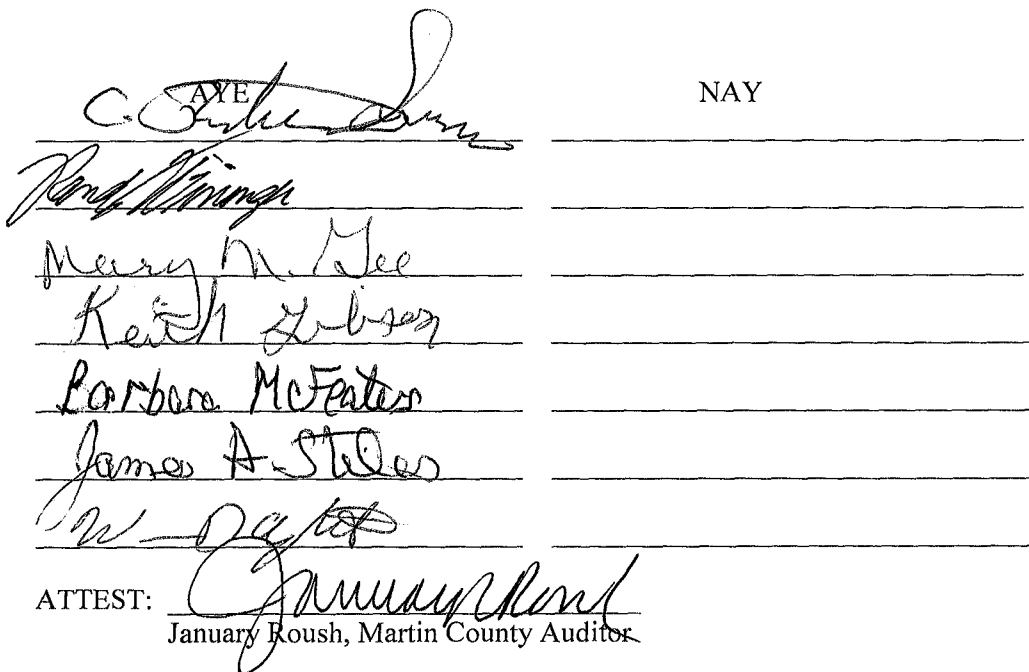 AYE NAY
C.
Mary M. Gee
Keith Gibson
Barbara McFeaters
James A. Stiles
W
ATTEST: January Roush
January Roush, Martin County Auditor